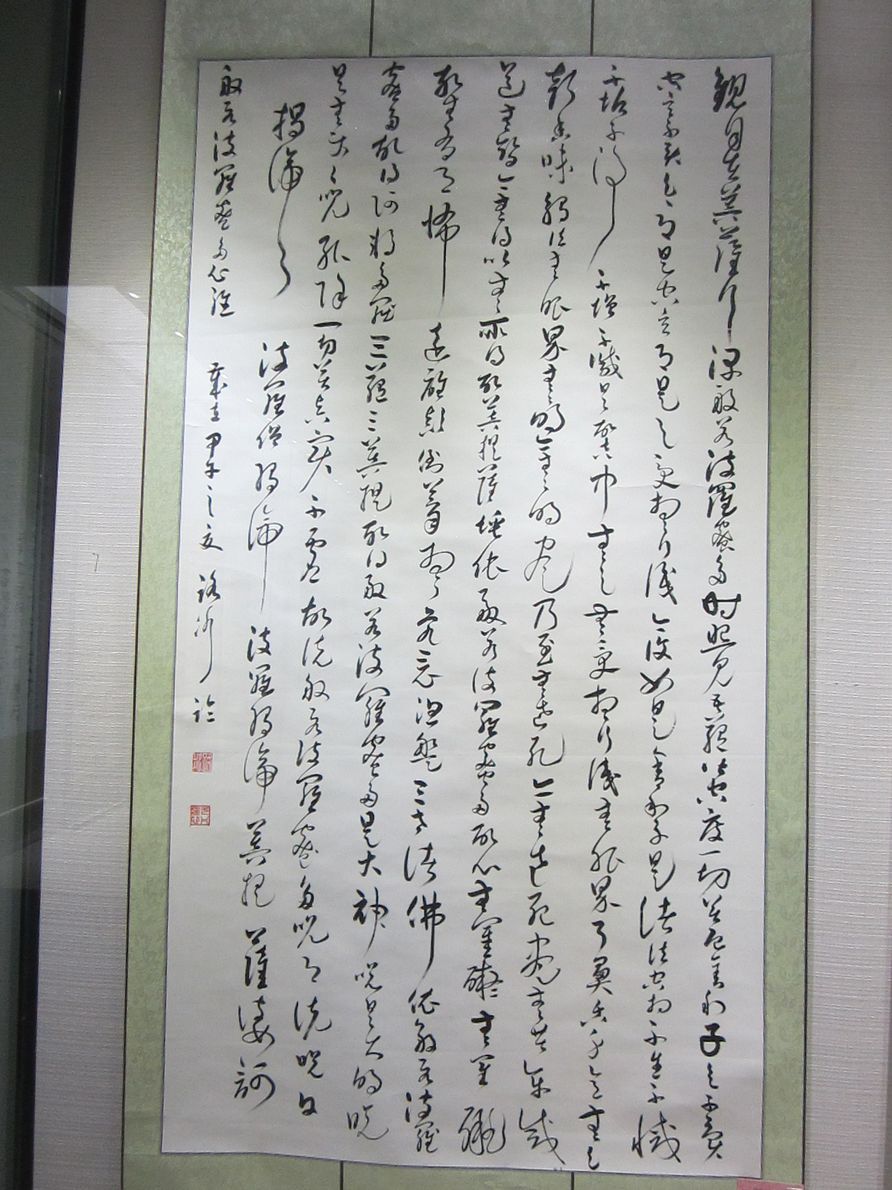 觀自在菩薩行深般若波羅蜜多時照見五蘊皆空度一切苦厄舍利子色不異
空空不異色色即是空空即是色受想行識亦復如是舍利子是諸法空相不生不滅
不垢不淨不增不減是故空中無色無受想行識無眼界耳鼻舌身意無色
聲香味觸法無眼界無無明亦無無明盡乃至無老死亦無老死盡無苦集滅
道無智亦無得以無所得故菩提薩埵依般若波羅蜜多故心無罣礙無罣礙
故無有恐怖遠離顛倒夢想究竟涅槃三世諸佛依般若波羅
蜜多故得阿耨多羅三藐三菩提故知般若波羅蜜多是大神咒是大明咒
是無等々咒能除一切苦真實不虛故說般若波羅蜜多咒即說咒曰
揭諦々々波羅僧揭諦波羅揭諦菩提薩婆訶
般若波羅蜜多心經 歲在甲午之夏